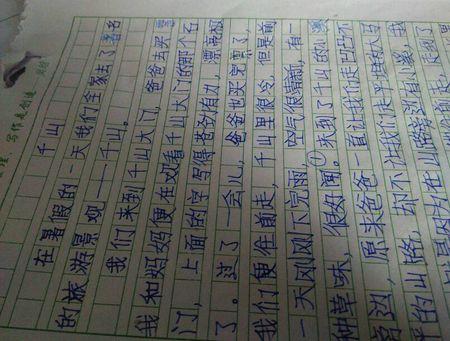 写作是创造
千山
在暑假的一天我们全家去了著名
的旅游景观——千山。
我们来到千山大门，爸爸去买票
我和妈妈便在观看千山大门的那个石
门，上面的字写得苍劲有力，漂亮极
了。过了一会儿，爸爸也买完票了，
我们便往前走，千山里很冷，但是前
一天刚刚下完雨，空气很清新，有一
种草味，很好闻。①来到了千山的小
旁边，原来爸爸一直让我们走凹凸不
平的山路，却不让我们走平坦的大
是因为在山路旁有小溪，我